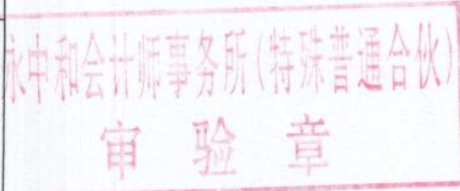 永中和会计师事务所(特殊普通合伙)
审验章